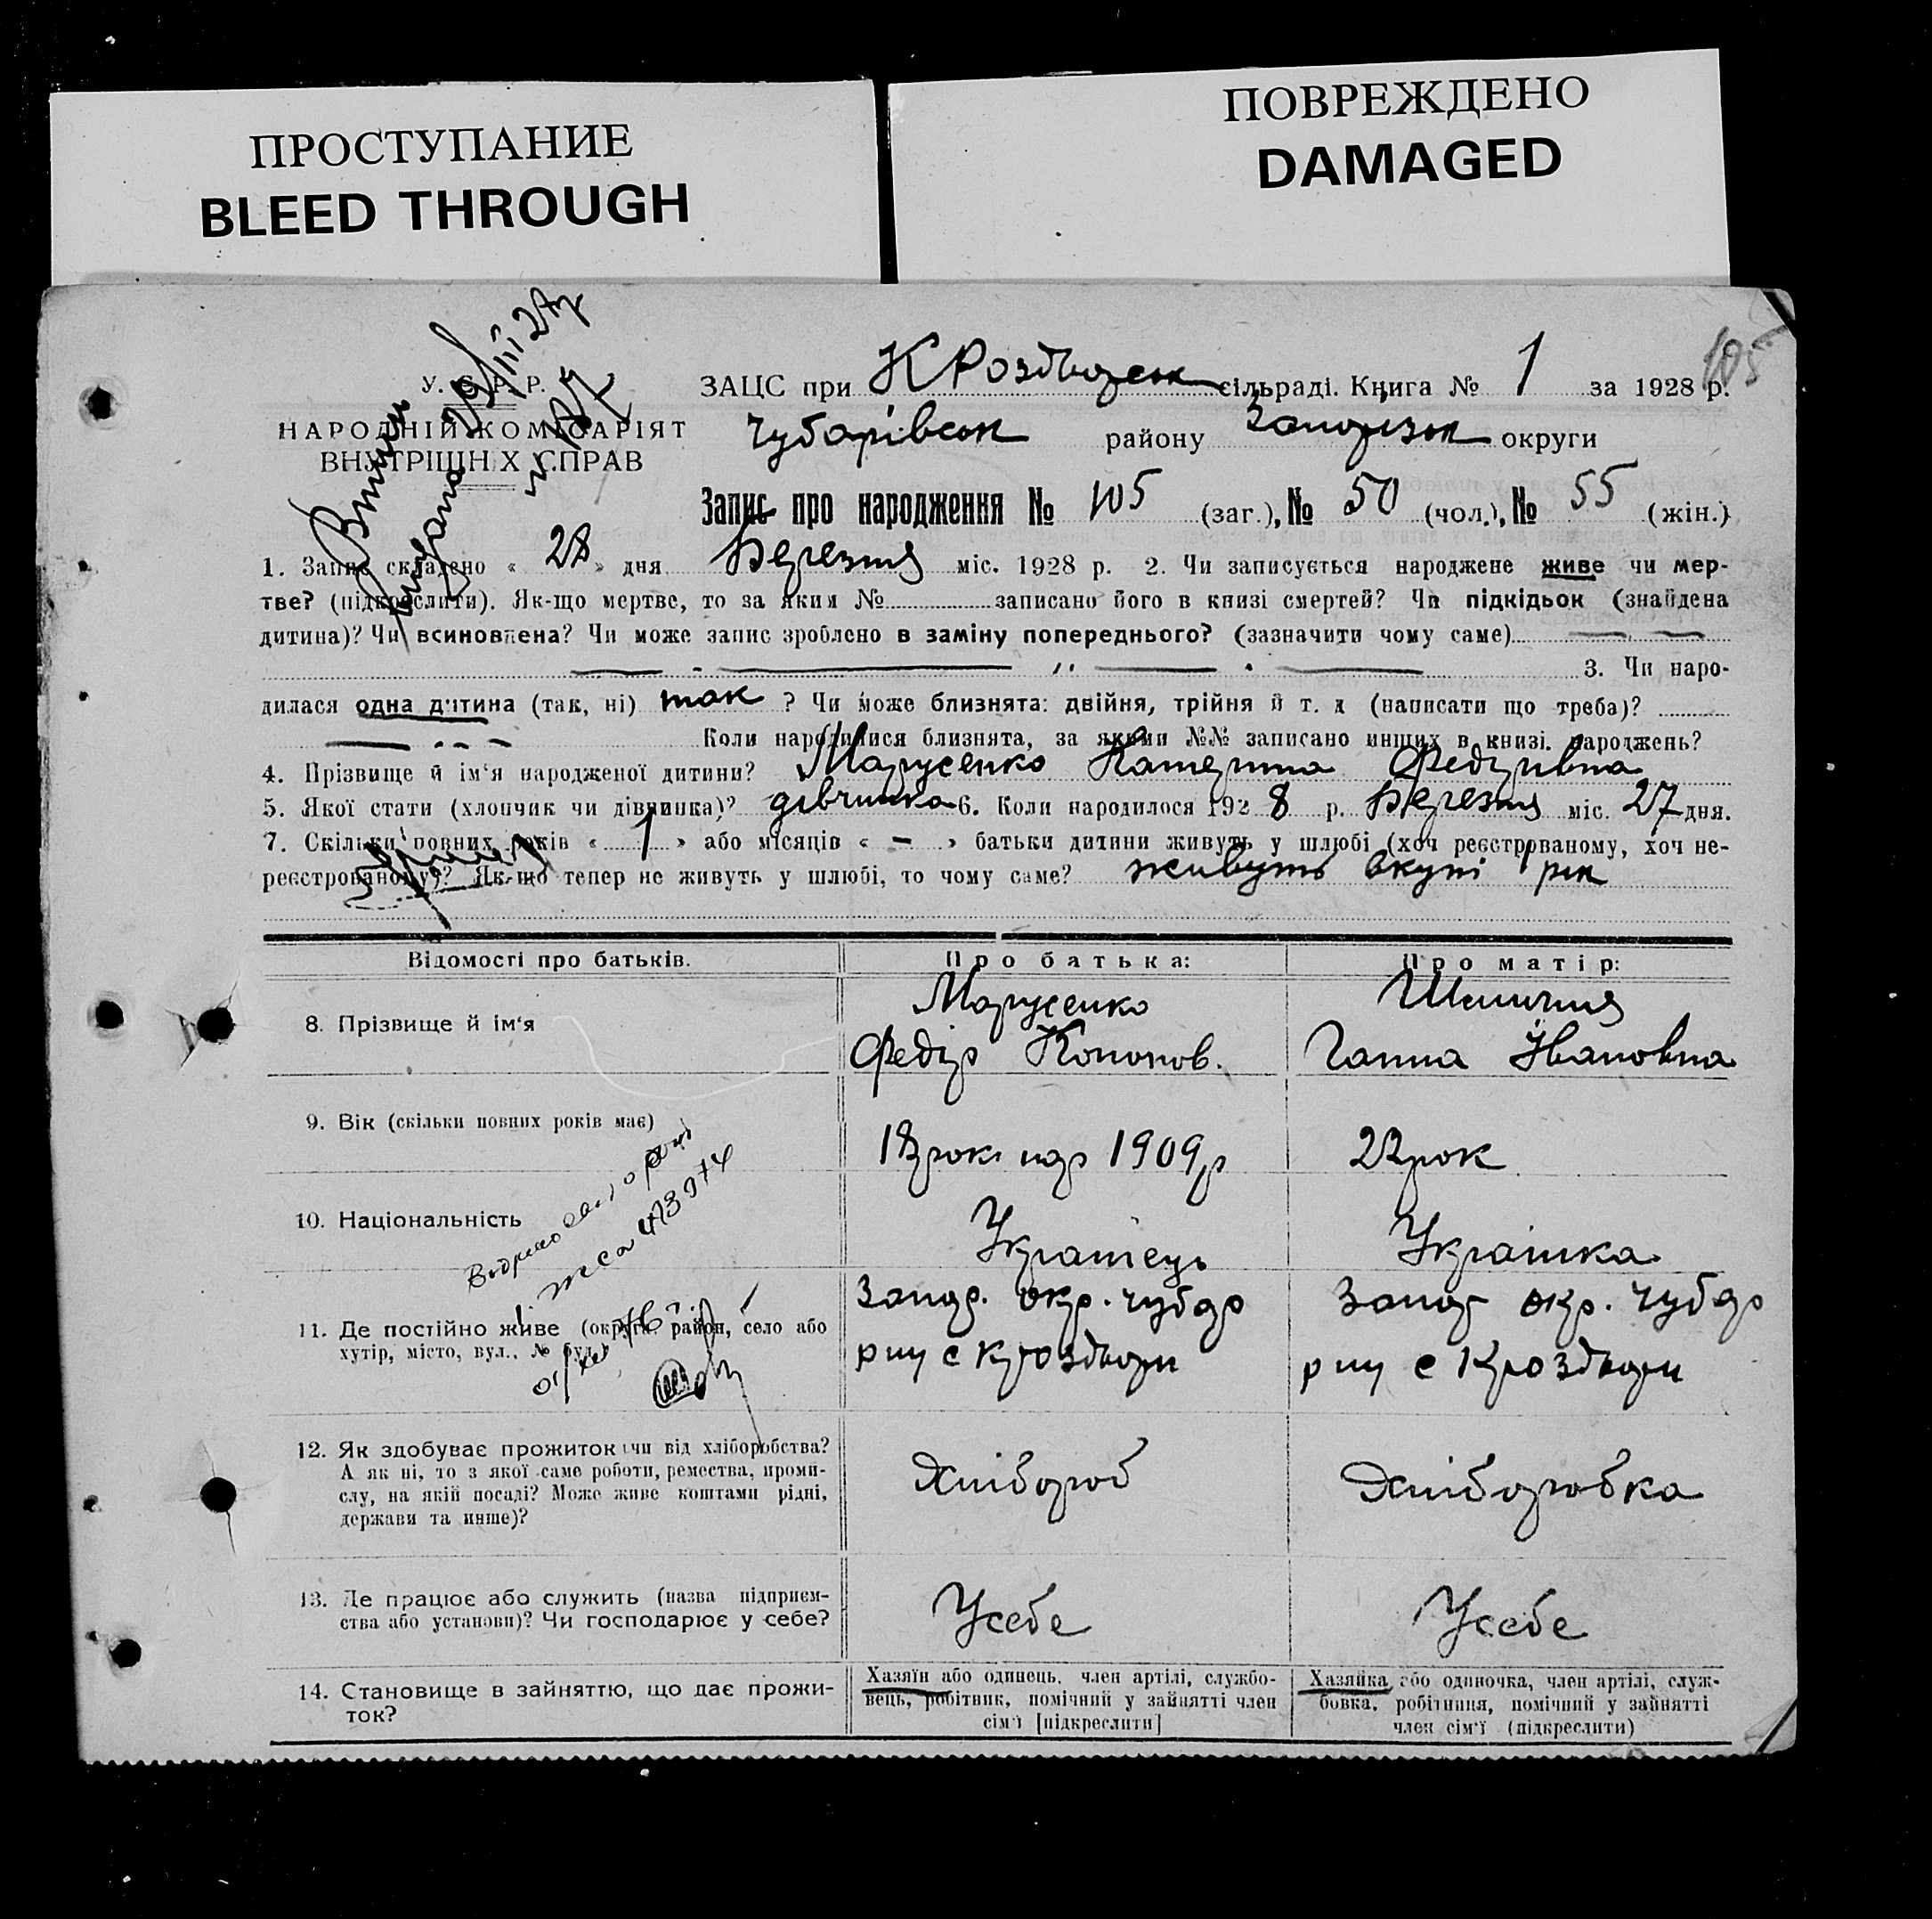 ПРОСТУПАНИЕ
BLEED THROUGH
ПОВРЕЖДЕНО
DAMAGED
105
У. С. Р. Р.
НАРОДНІЙ КОМІСАРІЯТ
ВНУТРІШНІХ СПРАВ
ЗАЦС при К Роздворськ сільраді. Книга № 1 за 1928 р.
Чубарівськ району Запорізьк округи
Запис про народження № 105 (заг.), № 50 (чол.), № 55 (жін.)
1. Запис складено « 28 » дня Березня міс. 1928 р. 2. Чи записується народжене живе чи мер-
тве? (підкреслити). Як-що мертве, то за яким № записано його в книзі смертей? Чи підкідьок (знайдена
дитина)? Чи всиновлена? Чи може запис зроблено в заміну попереднього? (зазначити чому саме)
3. Чи наро-
дилася одна дитина (так, ні) так ? Чи може близнята: двійня, трійня й т. д (написати що треба)?
Коли народилися близнята, за якими №№ записано инших в книзі народжень?
4. Прізвище й ім'я народженої дитини? Марусенко Катерина Федурівна
5. Якої стати (хлопчик чи дівчинка)? дівчинка 6. Коли народилося 192 8 р. Березня міс. 27 дня.
7. Скільки повних років « 1 » або місяців « – » батьки дитини живуть у шлюбі (хоч реєстрованому, хоч не-
реєстрованому)? Як-що тепер не живуть у шлюбі, то чому саме? живуть вкупі 1 рік
Відомості про батьків.
Про батька:
Про матір:
8. Прізвище й ім'я
Марусенко
Федір Кононов.
Ганна Івановна
9. Вік (скільки повних років має)
18 рок нар 1909 р
22 рок
10. Національність
Українець
Українка
11. Де постійно живе (округа, район, село або
хутір, місто, вул., № буд.
Запор. окр. Чубар
рну с К роздори
Запор окр. Чубар
рну с К роздори
12. Як здобуває прожиток (чи від хліборобства?
А як ні, то з якої саме роботи, ремества, проми-
слу, на якій посаді? Може живе коштами рідні,
держави та инше)?
Хлібороб
Хліборобка
13. Де працює або служить (назва підприєм-
ства або установи)? Чи господарює у себе?
У себе
У себе
14. Становище в зайняттю, що дає прожи-
ток?
Хазяїн або одинець, член артілі, службо-
вець, робітник, помічний у зайнятті член
сім'ї [підкреслити]
Хазяйка або одиночка, член артілі, служ-
бовка, робітниця, помічний у зайнятті
член сім'ї (підкреслити)